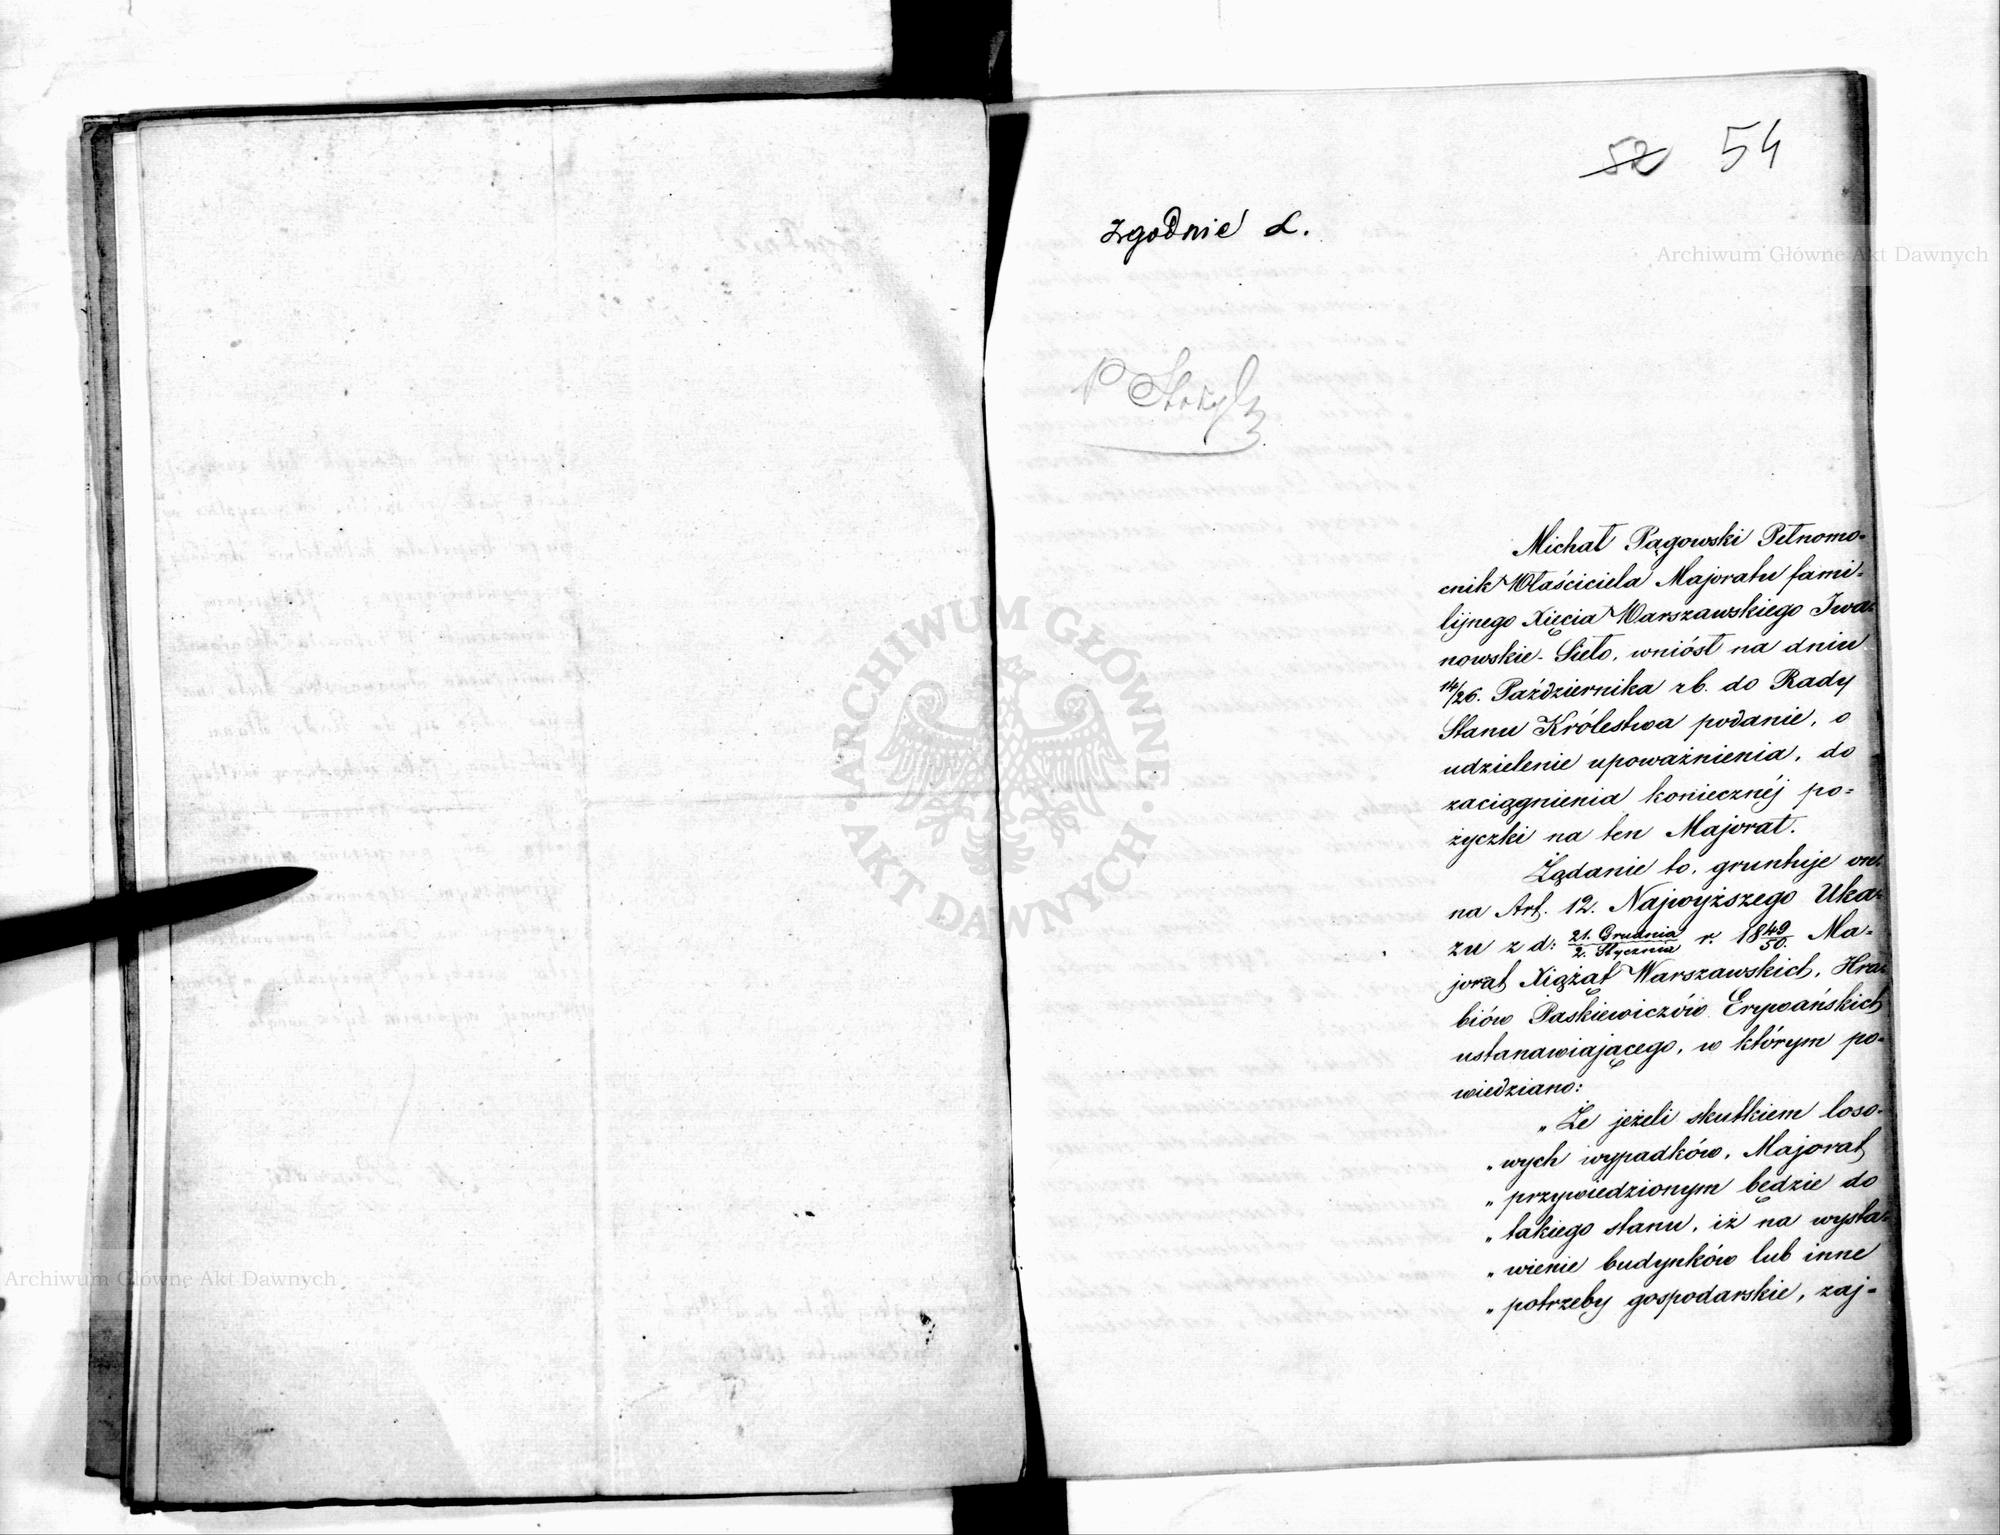 52 54
Zgodnie L.
Michał Pągowski Pełnomo-
cnik Właściciela Majoratu fami-
lijnego Xięcia Warszawskiego Iwa-
nowskie-Sieło, wniósł na dniu
14/26. Października rb. do Rady
Stanu Królestwa podanie, o
udzielenie upoważnienia, do
zaciągnienia koniecznéj po-
życzki na ten Majorat.
Żądanie to, gruntuje on
na Art. 12. Najwyższego Uka-
zu z d: 21. Grudnia/2. Stycznia r. 1849/50. Ma-
jorat Xiążąt Warszawskich, Hra-
biów Paskiewiczów Erywańskich
ustanawiającego, w którym po-
wiedziano:
„Że jeżeli skutkiem loso-
„wych wypadków, Majorat
„przywiedzionym będzie do
„takiego stanu, iż na wysta-
„wienie budynków lub inne
„potrzeby gospodarskie, zaj-
ARCHIWUM GŁÓWNE
AKT DAWNYCH
Archiwum Główne Akt Dawnych
Archiwum Główne Akt Dawnych